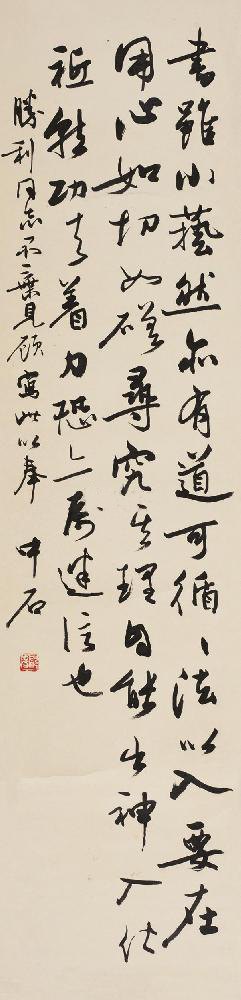 書雖小藝然亦有道可循〻法以入要在
用心如切如磋尋究其理自能出神入化
祗強功夫着力恐亦屬迷信也
勝利同志不棄見顧寫此以奉 中石